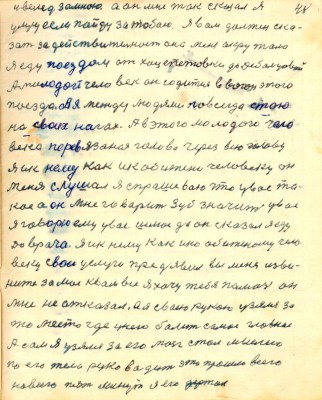 и вслед замною. а он мне так сказал я 48
умру если пайду за тобою. Я вам должен ска-
зать за действительност она меня окружала
Я еду поездом от
А молодой человек он содится в вагон этого
поезда. А я между людями повсегда стою
на своих нагах. А в этого молодого чело
века перевязана голова через всю голову
Я ик нему как ик обижено человеку он
меня слушал я спрашиваю што увас та-
кое а он мне говарит зуб значит увас
Я говорю ему увас цинга да он сказал я еду
до врача. Я ик нему как ико обиженому чело
веку свои услуги предявил вы меня изви-
ните за мои слова я хачу тебя
мне не отказал, а я своею рукою узялся за
то место где унего балит самое главное
А сам я узялся за его мозг стал мысленно
по его тела руко вадит это прошло всего
навсего пят минут я его